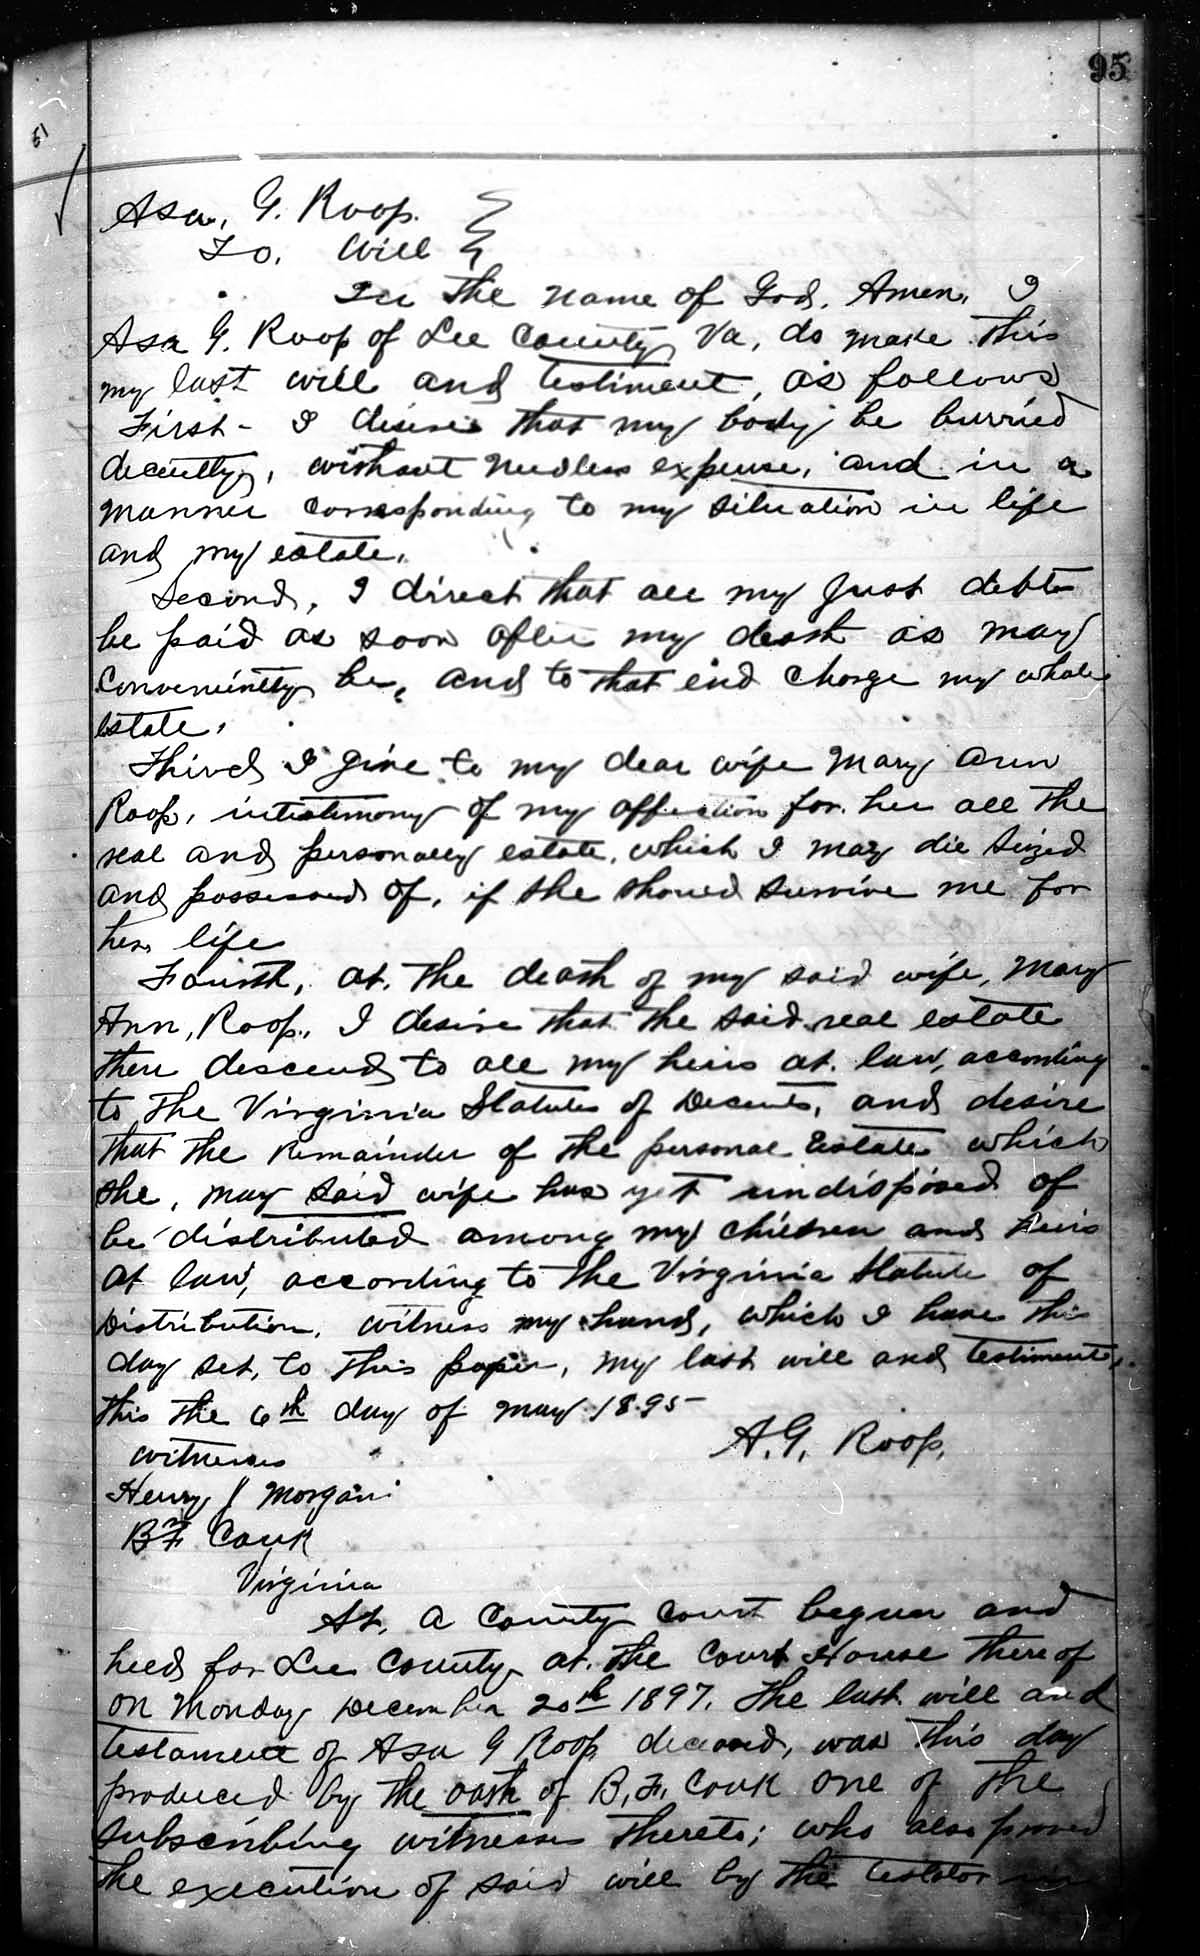 95
51
Asa, G. Roop.
To. Will
In the name of God, Amen, I
Asa G. Roop of Lee County, Va, do make this
my last will and testiment, as follows
First - I desire that my body be burried
decently, without needless expense, and in a
manner corresponding to my situation in life
and my estate.
Second, I direct that all my just debts
be paid as soon after my death as may
conveniently be, and to that end charge my whole
estate.
Third I give to my dear wife Mary Ann
Roop, in testimony of my affection for her all the
real and personally estate, which I may die seized
and possessed of, if she should survive me for
her life
Fourth, at the death of my said wife, Mary
Ann, Roop, I desire that the said real estate
then descend to all my heirs at law, according
to the Virginia Statutes of Decents, and desire
that the remainder of the personal Estate which
she, may said wife has yet undisposed of
be distributed among my children and heirs
at law, according to the Virginia Statute of
Distribution. witness my hand, which I have this
day set, to this paper, my last will and testiment,
this the 6th day of May 1895
A.G. Roop.
witnesses
Henry J Morgan
B F Couk
Virginia
At, a County Court begun and
held for Lee County, at the Court House thereof
on Monday December 20th 1897. The last will and
testament of Asa G Roop deceased, was this day
produced by the oath of B, F, Couk one of the
subscribing witnesses thereto; who also proved
the execution of said will by the testator